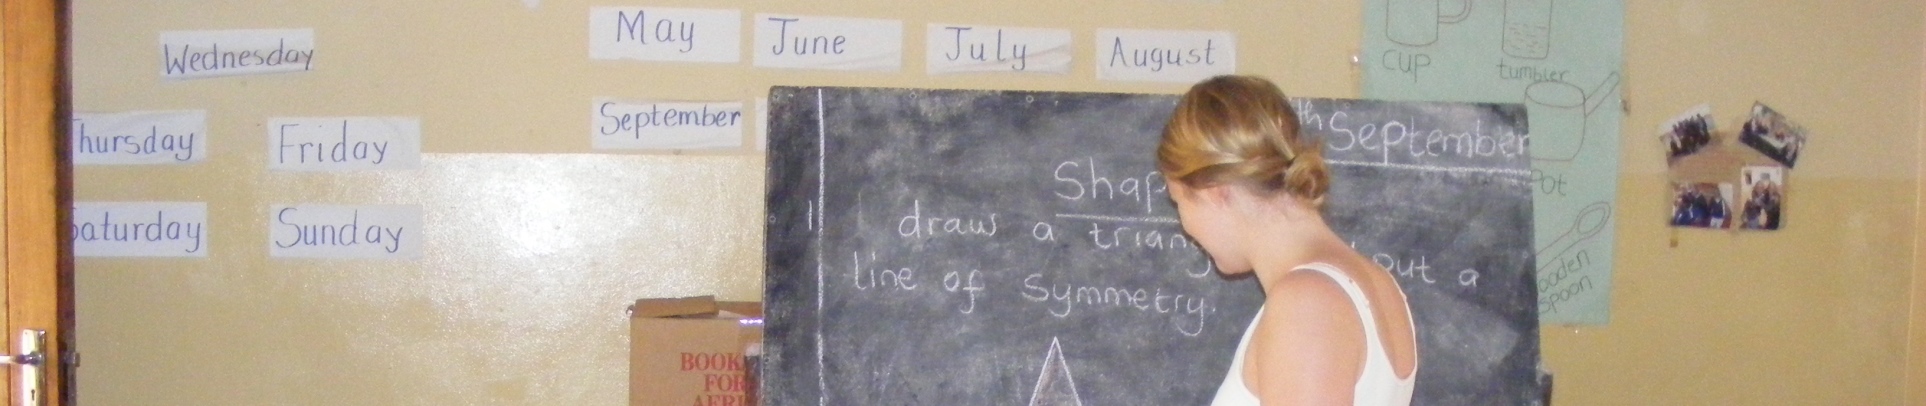 Wednesday
Thursday
Friday
Saturday
Sunday
May
June
July
August
September
th September
Shap
1 draw a triang out a
line of symmetry.
BOOK
FOR
AFRI
cup
tumbler
pot
ooden
spoon